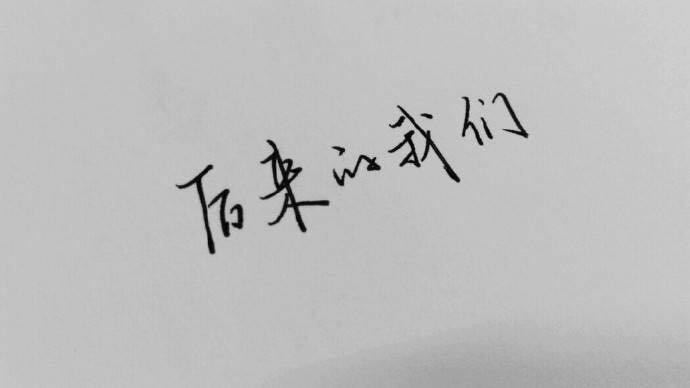 后来的我们